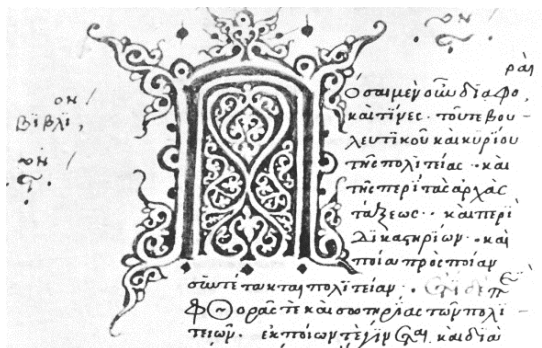 βϊβλι,
ον
Πόσαι μὲν οὖν διαφο
ραὶ
καὶ τίνες · τοῦ τε βου-
λευτικοῦ καὶ κυρίου
τῆς πολιτείας · καὶ
τῆς περὶ τὰς ἀρχὰς
τάξεως · καὶ περὶ
δικαστηρίων · καὶ
ποία πρὸς ποίαν
συντέτακται πολιτείαν ·
φθορᾶς τε καὶ σωτηρίας τῶν πολι-
τειῶν · ἐκ ποίων τε καὶ διὰ